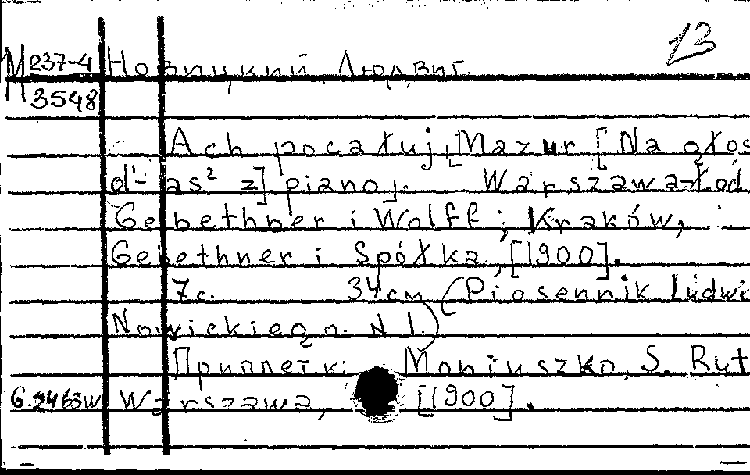 13
М 237-4 Новицкий Людвиг
3548
Ach pocałuj, [Mazur [Na głos
d¹- as² z] piano]. Warszawa-Łód
Gebethner i Wolff; Kraków,
Gebethner i Spółka, [1900].
7с. 34см (Piosennik Ludwi
Nowickiego. N 1.)
Приплетк: Moniuszko, S. But
G.2463W Warszawa, [1900].